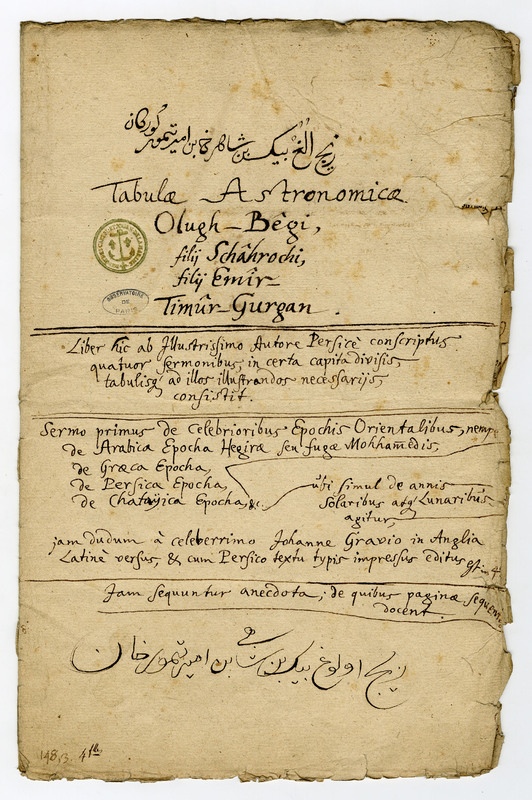 زيج الغ بيك بن شاهرخ بن امير تيمور كوركان
Tabulæ Astronomicæ
Olugh-Bègi,
filij Schâhrochi,
filij Emîr-
Timûr-Gurgan.
OBSERVATOIRE
DE
PARIS
Liber hic ab Illustrissimo Autore Persicè conscriptus
quatuor sermonibus in certa capita divisis,
tabulisq; ad illos illustrandos necessarijs,
consistit.
Sermo primus de Celebrioribus Epochis Orientalibus, nemp
de Arabica Epocha Hegiræ seu fugæ Mohham̃edis,
de Græca Epocha,
de Persica Epocha,
de Chatayica Epocha, &c.
ubi simul de annis
Solaribus atq; Lunaribus
agitur,
jam dudum à celeberrimo Johanne Gravio in Anglia
Latinè versus, & cum Persico textu typis impressus editus est in 4
Jam sequuntur anecdota, de quibus paginæ sequen
docent.
زيج اولوغ بيك بن امير تيمور خان